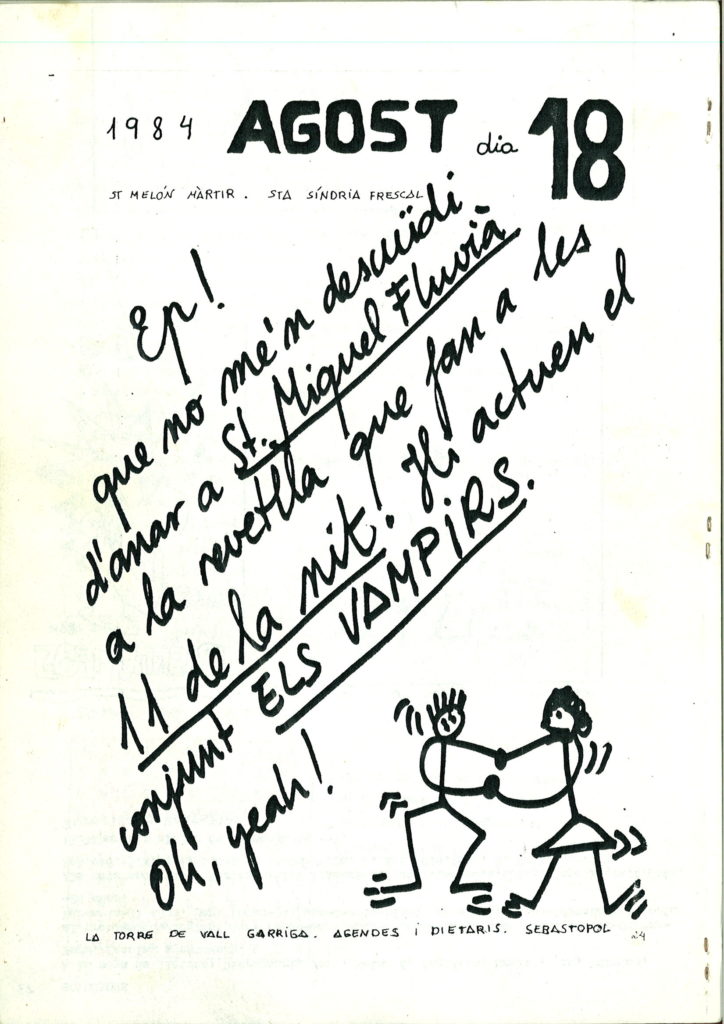 1984 AGOST dia 18
ST MELÓN MÀRTIR. STA SÍNDRIA FRESCAL
Ep!
que no me'n descuïdi
d'anar a St. Miquel Fluvià
a la revetlla que fan a les
11 de la nit. Hi actuen el
conjunt ELS VAMPIRS.
Oh, yeah!
LA TORRE DE VALL GARRIGA. AGENDES i DIETARIS. SEBASTOPOL